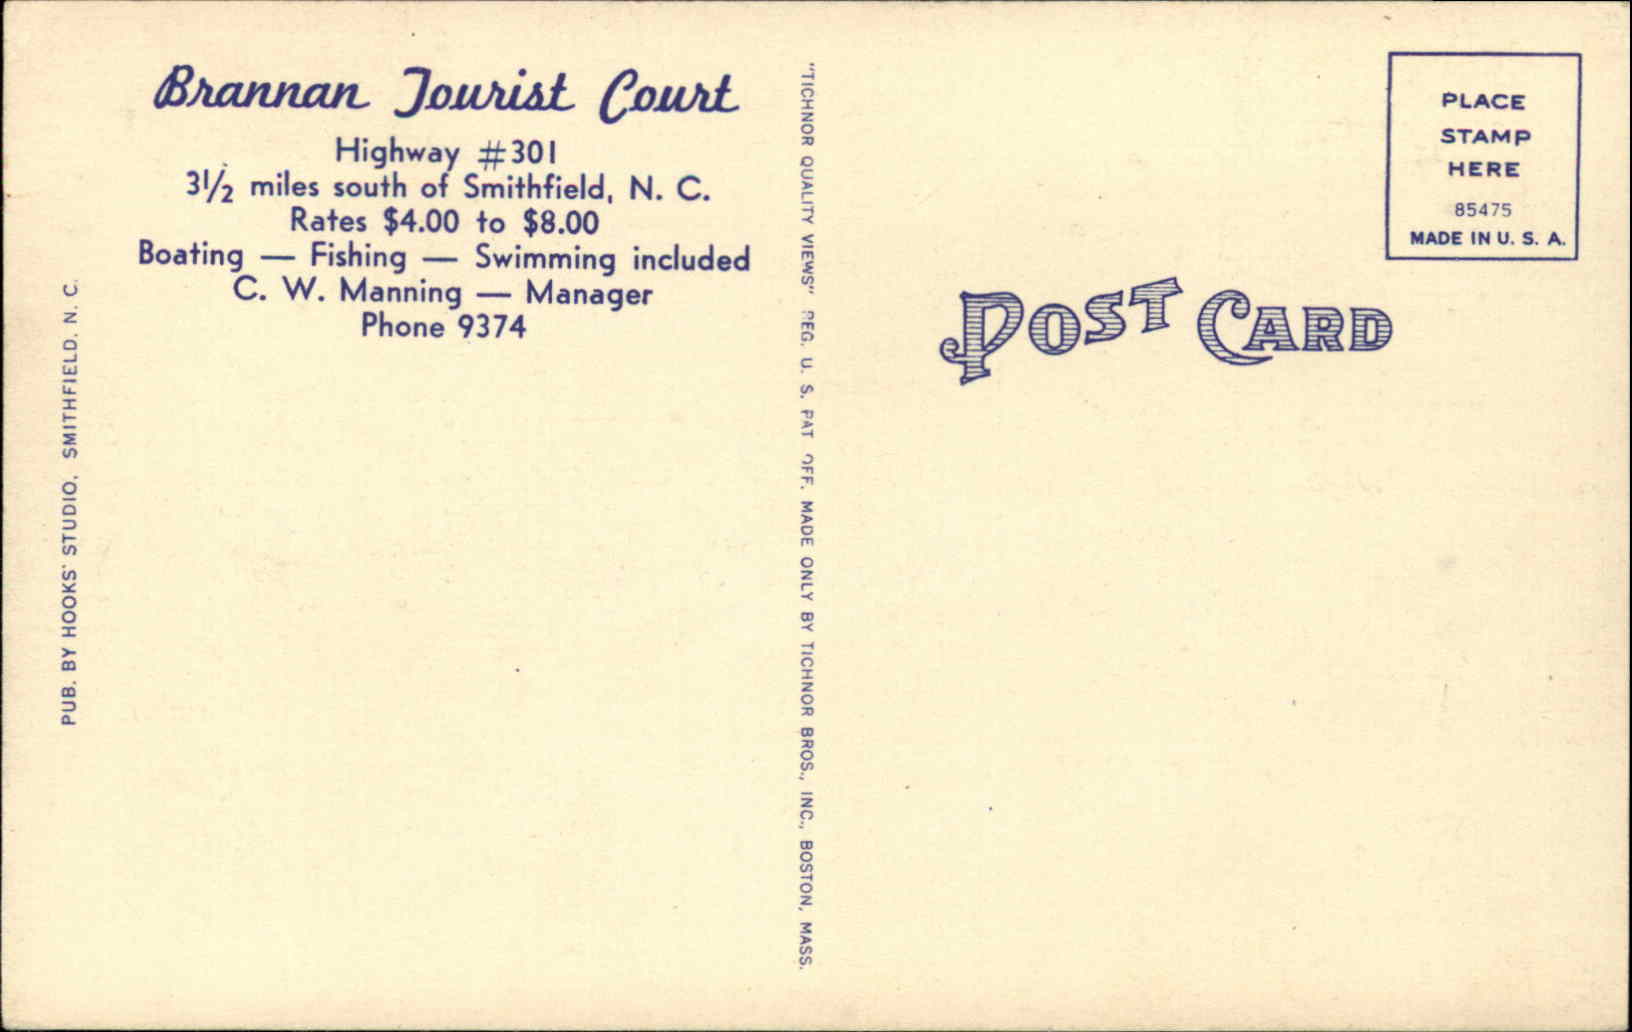 Brannan Tourist Court
Highway #301
3½ miles south of Smithfield, N. C.
Rates $4.00 to $8.00
Boating — Fishing — Swimming included
C. W. Manning — Manager
Phone 9374
PUB. BY HOOKS' STUDIO, SMITHFIELD, N. C.
"TICHNOR QUALITY VIEWS" REG. U. S. PAT. OFF. MADE ONLY BY TICHNOR BROS., INC., BOSTON, MASS.
PLACE
STAMP
HERE
85475
MADE IN U. S. A.
POST CARD